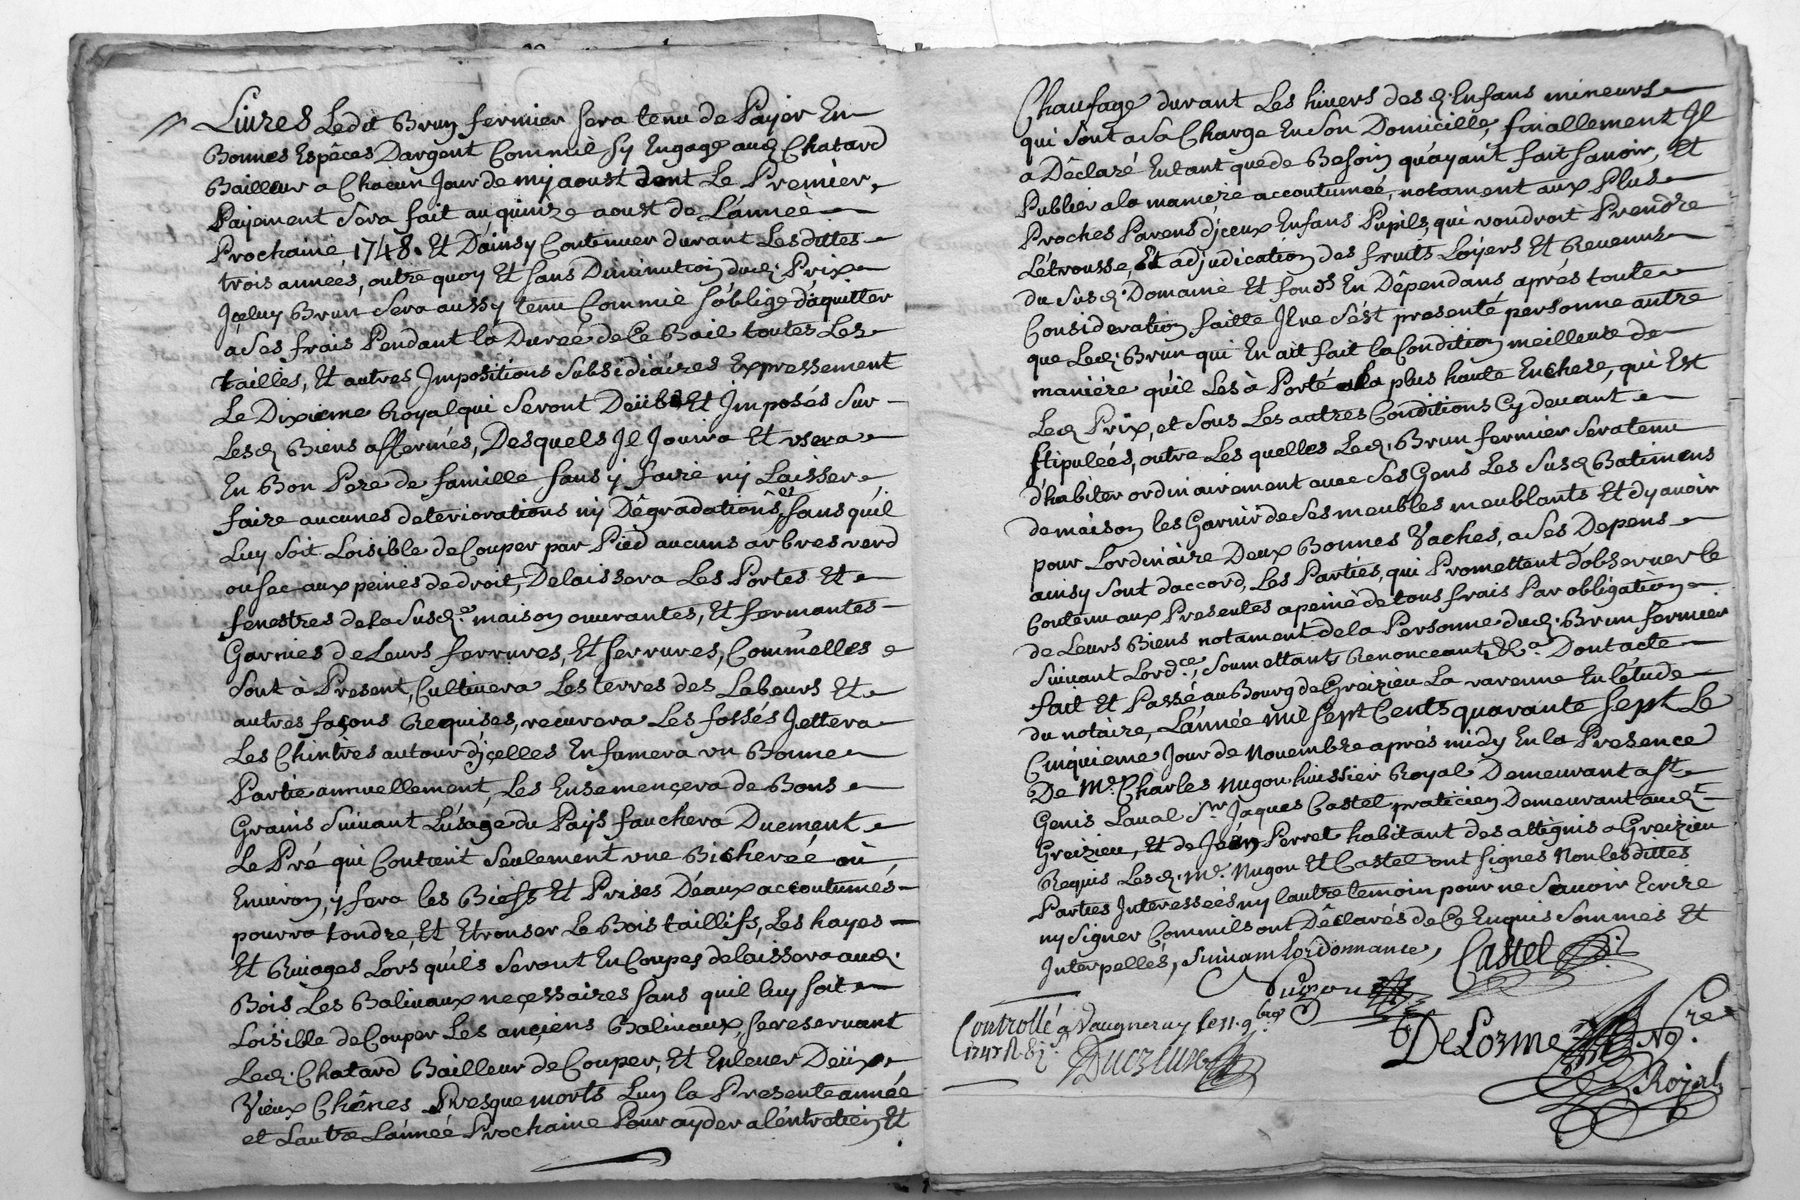 Livres Ledit Brun fermier sera tenu de Payer En
Bonnes Espèces Dargent Commil sy Engage aud Chatard
Bailleur a Chacun Jour de my aoust dont Le Premier
Payement Sera fait au quinze aoust de L'année
Prochaine 1748. Et Dainsy Continuer durant Lesdittes
trois années, outre quoy Et sans Diminution dud. Prix
Iceluy Brun Sera aussy tenu Commil s'oblige d'aquitter
à Ses frais Pendant la Durée de Ce Bail toutes Les
tailles, Et autres Impositions Subsidiaires Expressement
Le Dixieme Royal qui Seront Deüb Et Imposés Sur
Lesd Biens affermés, Desquels Il Jouira Et usera
En Bon Pere de famille sans y faire ny Laisser
faire aucunes deteriorations ny Dégradations, et sans quil
Luy soit Loisible de Couper par Pied aucuns arbres verd
ou sec aux peines de droit, Delaissera Les Portes Et
fenestres de la Susd.e maison ouvrantes, Et fermantes
Garnies de Leurs ferrures, Et serrures, Comm'elles
Sont à Present, Cultivera Les terres des Labeurs Et
autres façons Requises, recurera Les fossés Jettera
Les Chintres autour d'jcelles En famera vn Bonne
Partie annuellement, Les Ensemençera de Bons
Grains Suivant L'usage du Païs fauchera Duement
Le Pré qui Contient Seulement vne Bicherée où
Environ, y fera les Biefs Et Prises D'eaux accoutumés
pourra tondre, Et Etrousser Le Bois taillifs, Les hayes
Et Rivages Lors qu'ils Seront En Coupes delaissera aud.
Bois Les Balivaux neçessaires sans quil luy soit
Loisible de Couper Les ançiens Balivaux, se reservant
Led. Chatard Bailleur de Couper, Et Enlever Deüx
Vieux Chênes Presque morts L'un la Presente année
et Lautre L'année Prochaine Pour ayder a l'entretien Et
Chaufage durant Les hivers des d. Enfans mineurs
qui Sont a Sa Charge En Son Domicille, finallement Il
a Déclaré Entant que de Besoin qu'ayant fait savoir, Et
Publier a la maniere accoutumeé, notament aux Plus
Proches Parens d'jceux Enfans Pupils, qui voudroit Prendre
L'étrousse, Et adjudication des fruits Loyers Et Revenus
du Susd. Domaine Et fonds En Dépendans aprés toute
Consideration faitte Il ne s'est presenté personne autre
que Led. Brun qui En ait fait la Condition meilleure de
maniére qu'il Les à Porté a la plus haute Enchere, qui Est
Led Prix, et Sous Les autres Conditions Cy devant
stipulées, outre Les quelles Led. Brun fermier Sera tenu
d'habiter ordinairement avec Ses Gens Les Susd Batimens
de maison les Garnir de Ses meubles meublants Et d'y avoir
pour Lordinaire Deux Bonnes Vaches, a Ses Depens
ainsy Sont d'accord, Les Parties, qui Promettent d'observer le
Contenu aux Presentes a peine de tous frais Par obligation
de Leurs Biens notament de la Personne dud. Brun fermier
Suivant Lord.ce, Soumettants Renonceant &.a Dont acte
fait Et Passé au Bourg de Greizieu La varenne En L'étude
du notaire, L'année mil Sept Cents quarante Sept Le
Cinquieme Jour de Novembre aprés midy En la Presence
De M.e Charles Nugon huissier Royal Demeurant a St
Genis Laval S.r Jaques Castel praticien Demeurant aud.
Greizieu, Et de Jean Perret habitant des attignis a Greizieu
Requis Lesd. M.e Nugon Et Castel ont signes Non lesdittes
Parties Interessées ny lautre temoin pour ne Savoir Ecrire
ny signer Commils ont Déclarés de Ce Enquis Sommés Et
Interpellés, Suivant Lordonnance,
Castel
Nugon
Controllé a Vaugneray le 11. 9.bre
1747 R.
Ducreux
DeLorme No.re
Royal